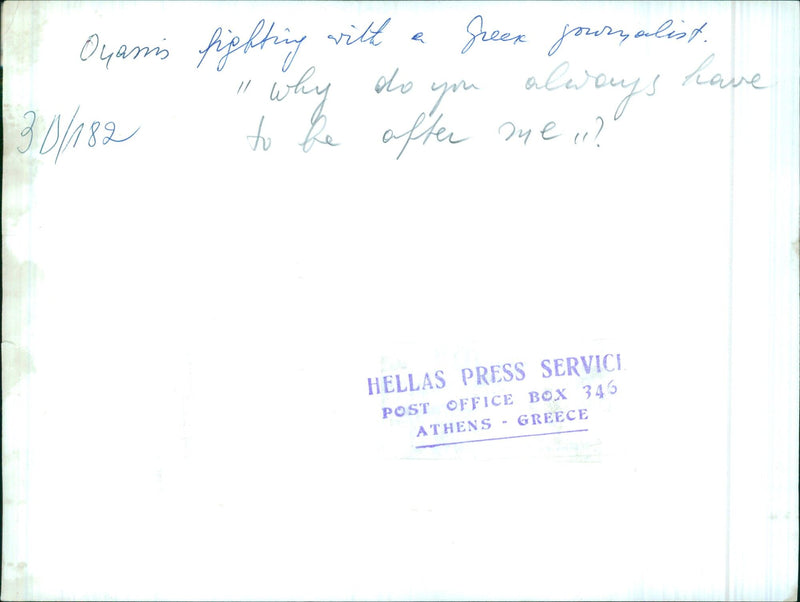 Onassis fighting with a Greek journalist.
"why do you always have
3D/182
to be after me"?
HELLAS PRESS SERVICE
POST OFFICE BOX 346
ATHENS - GREECE